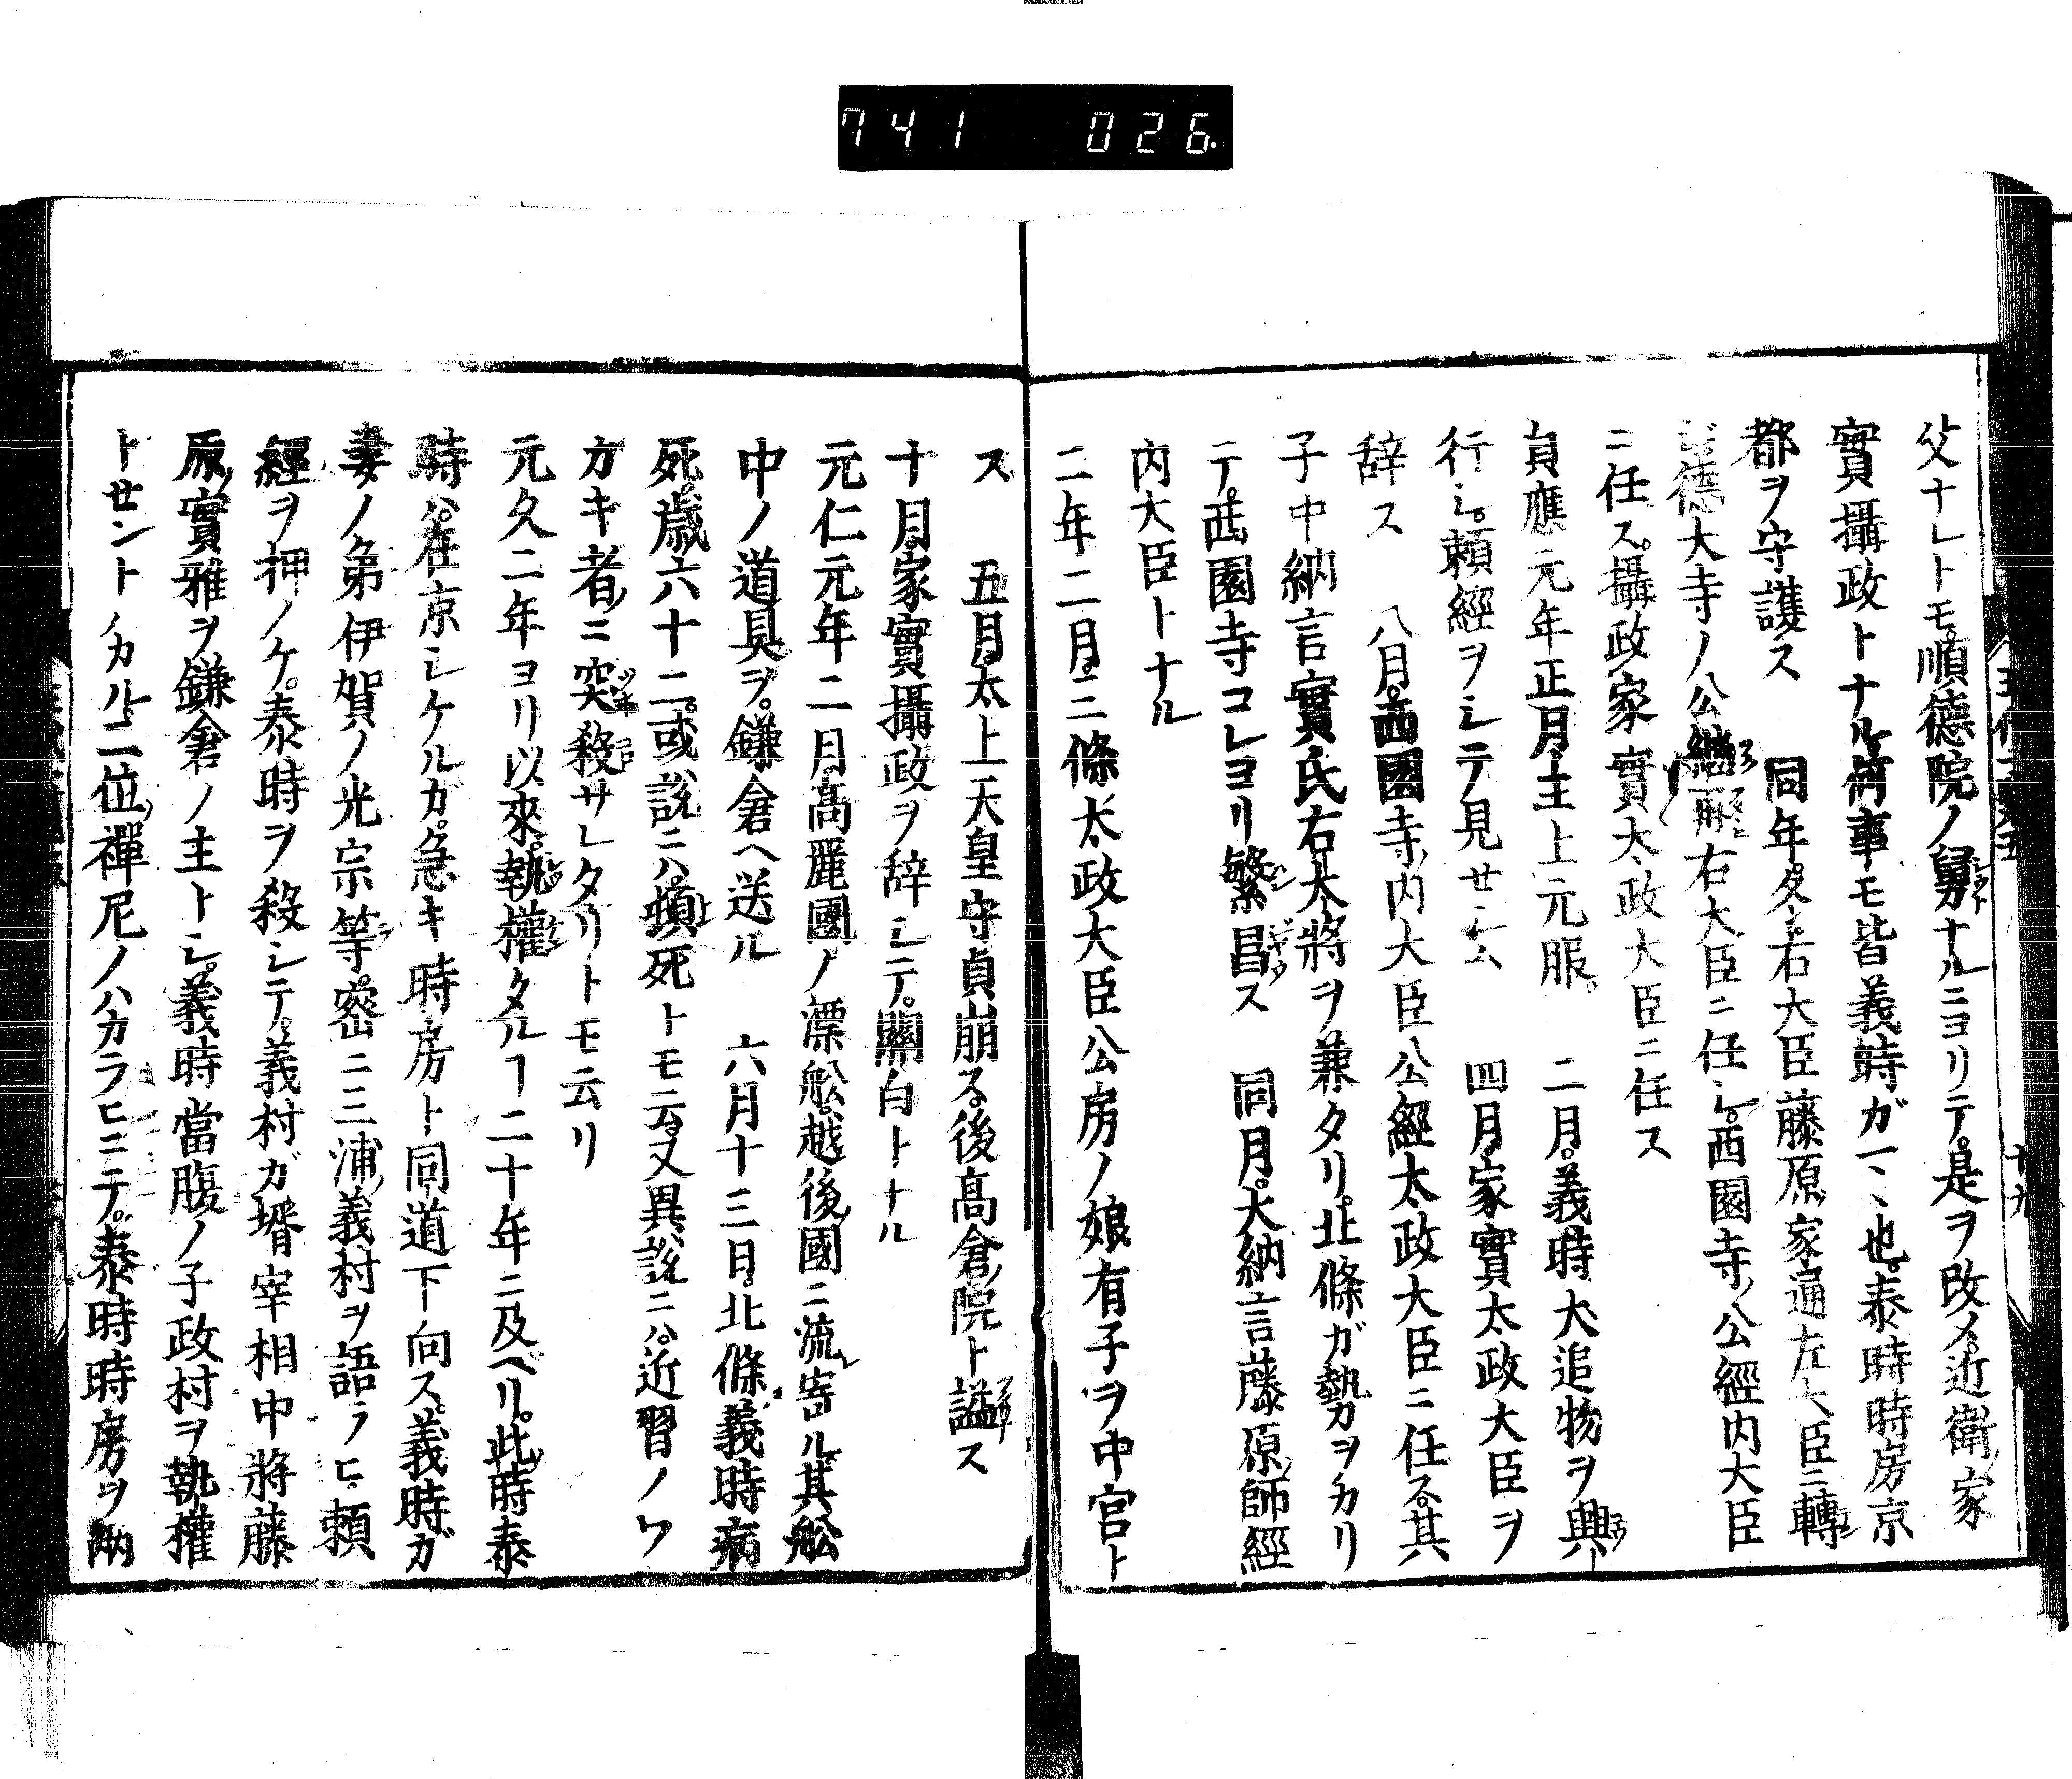 741 026
父ナレトモ順德院ノ舅ナルニヨリテ是ヲ改ム近衞家
實攝政トナル何事モ皆義時ガ一ヽ也泰時時房京
都ヲ守護ス 同年 右大臣藤原家通左大臣ニ轉
德大寺ノ公繼 右大臣ニ任シ西園寺公經内大臣
ニ任ス攝政家實太政大臣ニ任ス
貞應元年正月主上元服 二月義時犬追物ヲ興
行シ頼經ヲシテ見セシム 四月家實太政大臣ヲ
辞ス 八月西園寺内大臣公經太政大臣ニ任ス其
子中納言實氏右大將ヲ兼タリ北條ガ勢力ヲカリ
テ西園寺コレヨリ繁昌ス 同月大納言藤原師經
内大臣トナル
二年二月三條太政大臣公房ノ娘有子ヲ中宮ト
ス 五月太上天皇守貞崩ス後髙倉院ト謚ス
十月家實攝政ヲ辞シテ關白トナル
元仁元年二月髙麗國ノ漂舩越後國ニ流寄ル其舩
中ノ道具ヲ鎌倉ヘ送ル 六月十三日北條義時病
死歳六十二或説ニハ頓死トモ云又異説ニハ近習ノワ
カキ者ニ突殺サレタリトモ云リ
元久二年ヨリ以來執權タルヿ二十年ニ及ヘリ此時泰
時ハ在京シケルガ急キ時房ト同道下向ス義時ガ
妻ノ弟伊賀ノ光宗等密ニ三浦義村ヲ語ラヒ頼
經ヲ押ノケ泰時ヲ殺シテ義村ガ壻宰相中將藤
原實雅ヲ鎌倉ノ主トシ義時當腹ノ子政村ヲ執權
トセントハカル二位禪尼ノハカラヒニテ泰時時房ヲ兩
十九